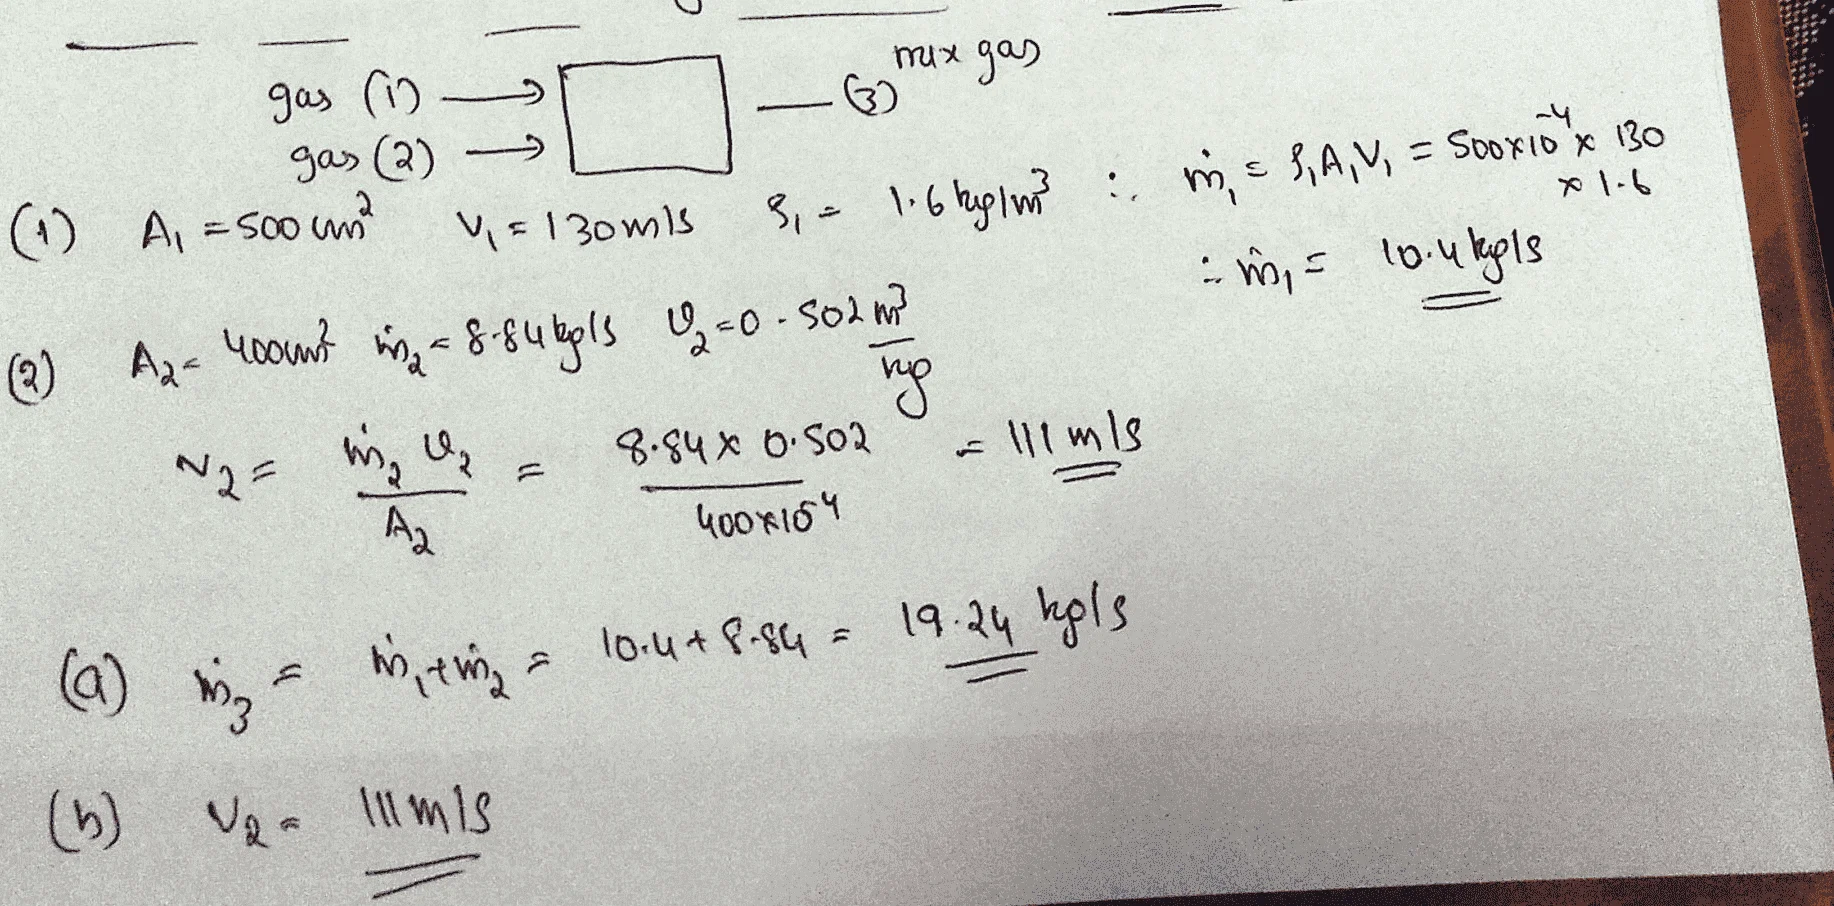 gas (1) → mix gas
gas (2) → — (3)
(1) A₁ = 500 cm² V₁ = 130 m/s ρ₁ = 1.6 kg/m³ ∴ ṁ₁ = ρ₁A₁V₁ = 500×10⁻⁴ × 130 × 1.6
∴ ṁ₁ = 10.4 kg/s
(2) A₂ = 400 cm² ṁ₂ = 8.84 kg/s v₂ = 0.502 m³/kg
V₂ = ṁ₂ v₂ / A₂ = 8.84 × 0.502 / 400×10⁻⁴ = 111 m/s
(a) ṁ₃ = ṁ₁ + ṁ₂ = 10.4 + 8.84 = 19.24 kg/s
(b) V₂ = 111 m/s